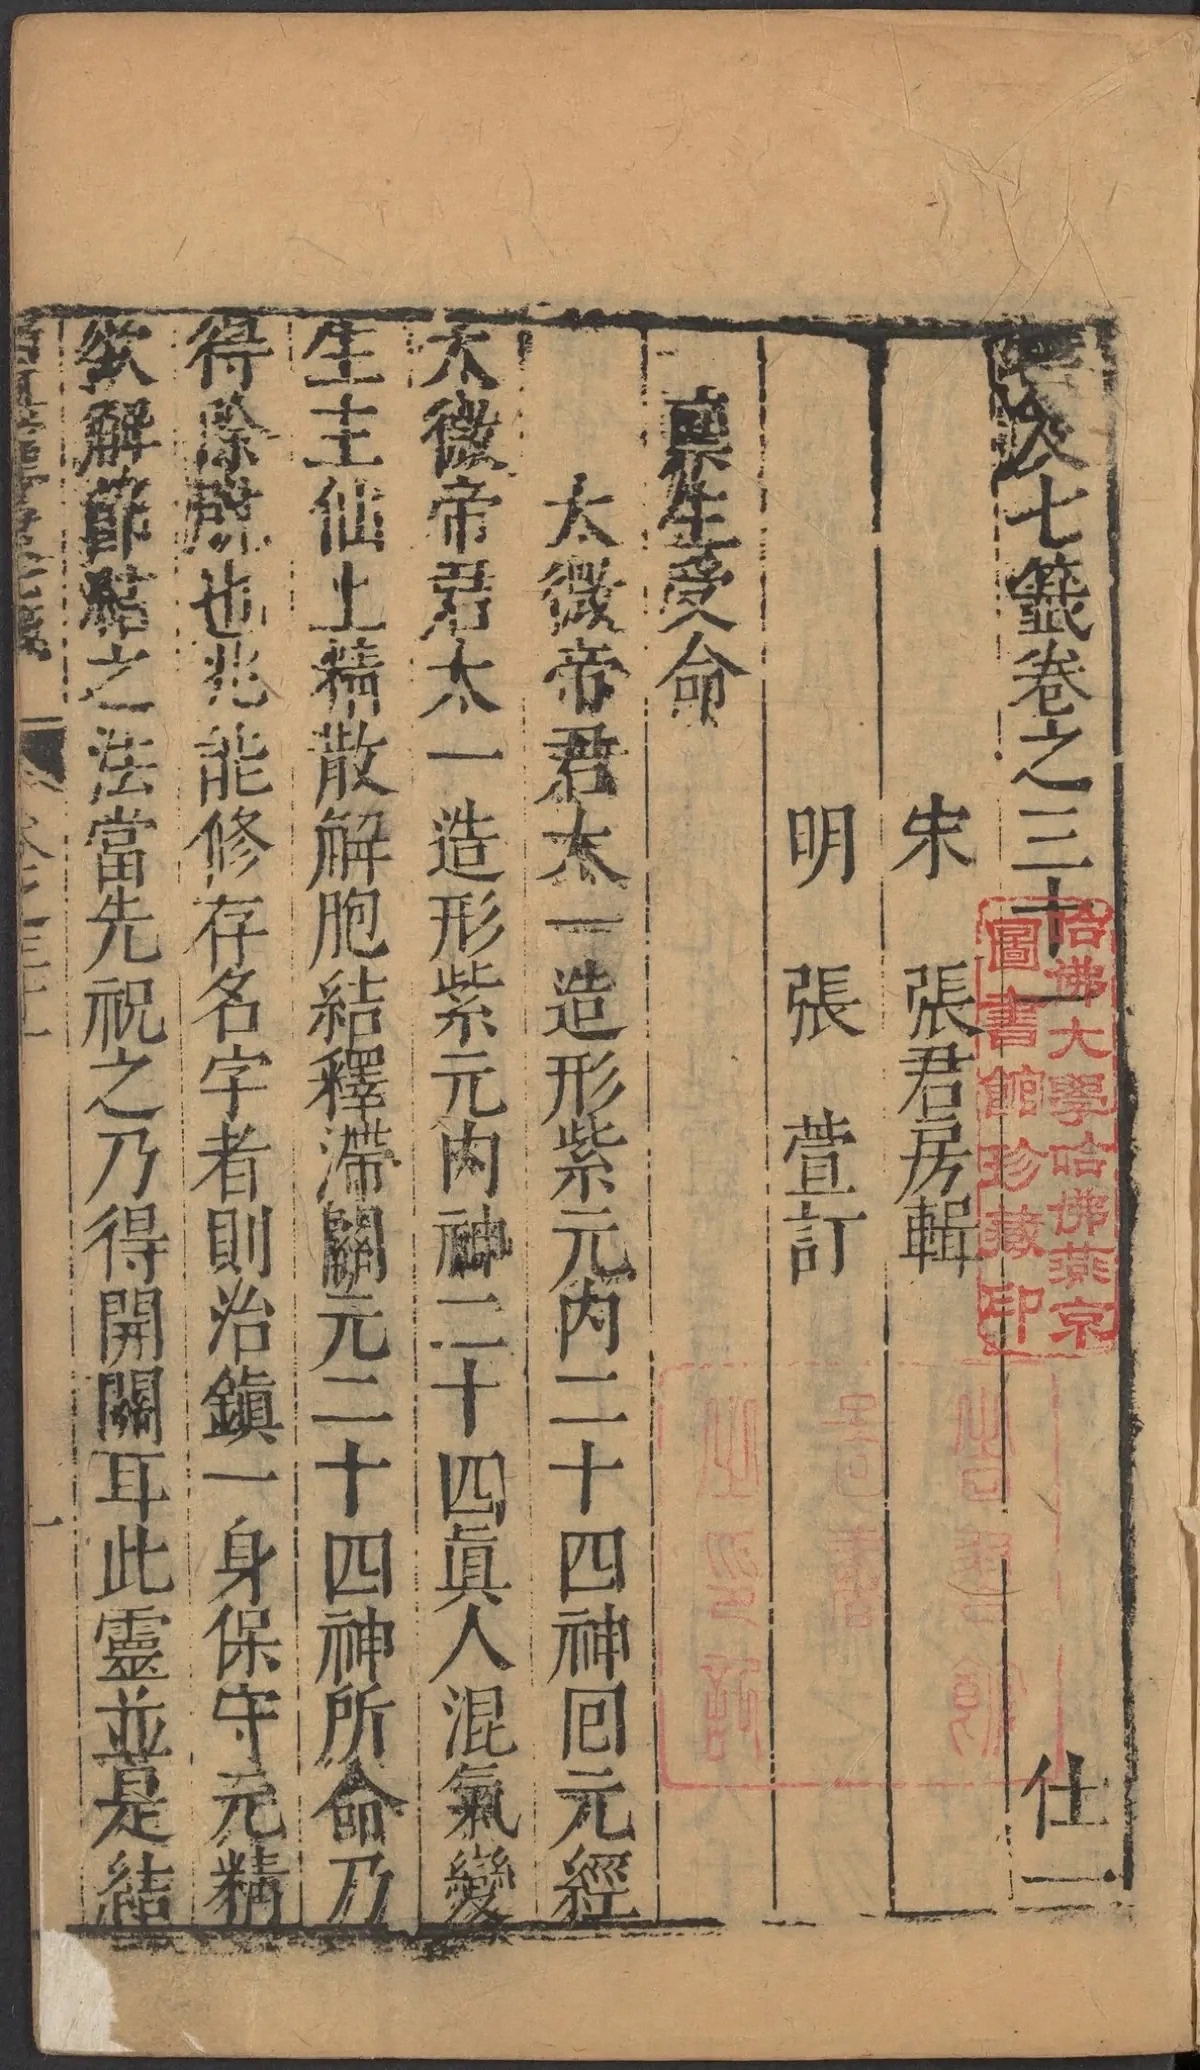 雲笈七籤卷之三十一 仕二
宋 張君房輯
明 張 萱訂
稟生受命
太微帝君太一造形紫元内二十四神囘元經
太微帝君太一造形紫元内神二十四眞人混氣變
生主仙上精散解胞結釋滯關元二十四神所命乃
得除 也兆能修存名字者則治鎮一身保守元精
欲解節結之法當先祝之乃得開關耳此靈並是結
哈佛大學哈佛燕京
圖書館珍藏印